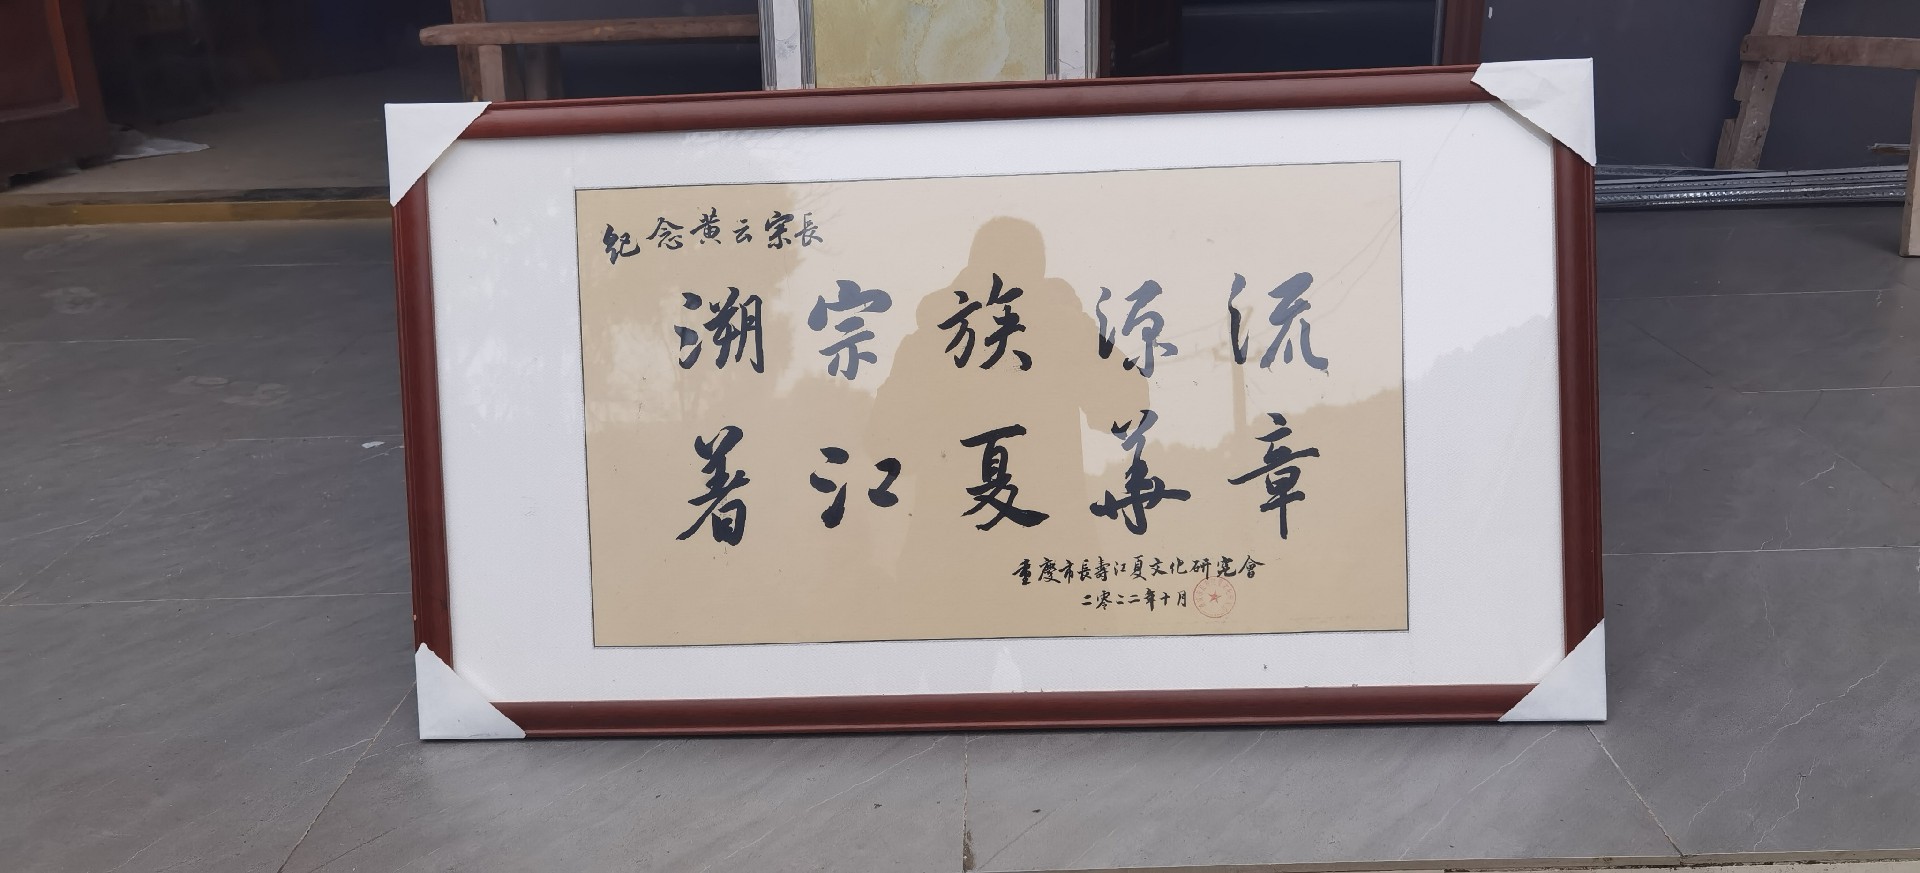 纪念黄云宗長
溯宗族源流
著江夏華章
重慶市長壽江夏文化研究會
二零二二年十月